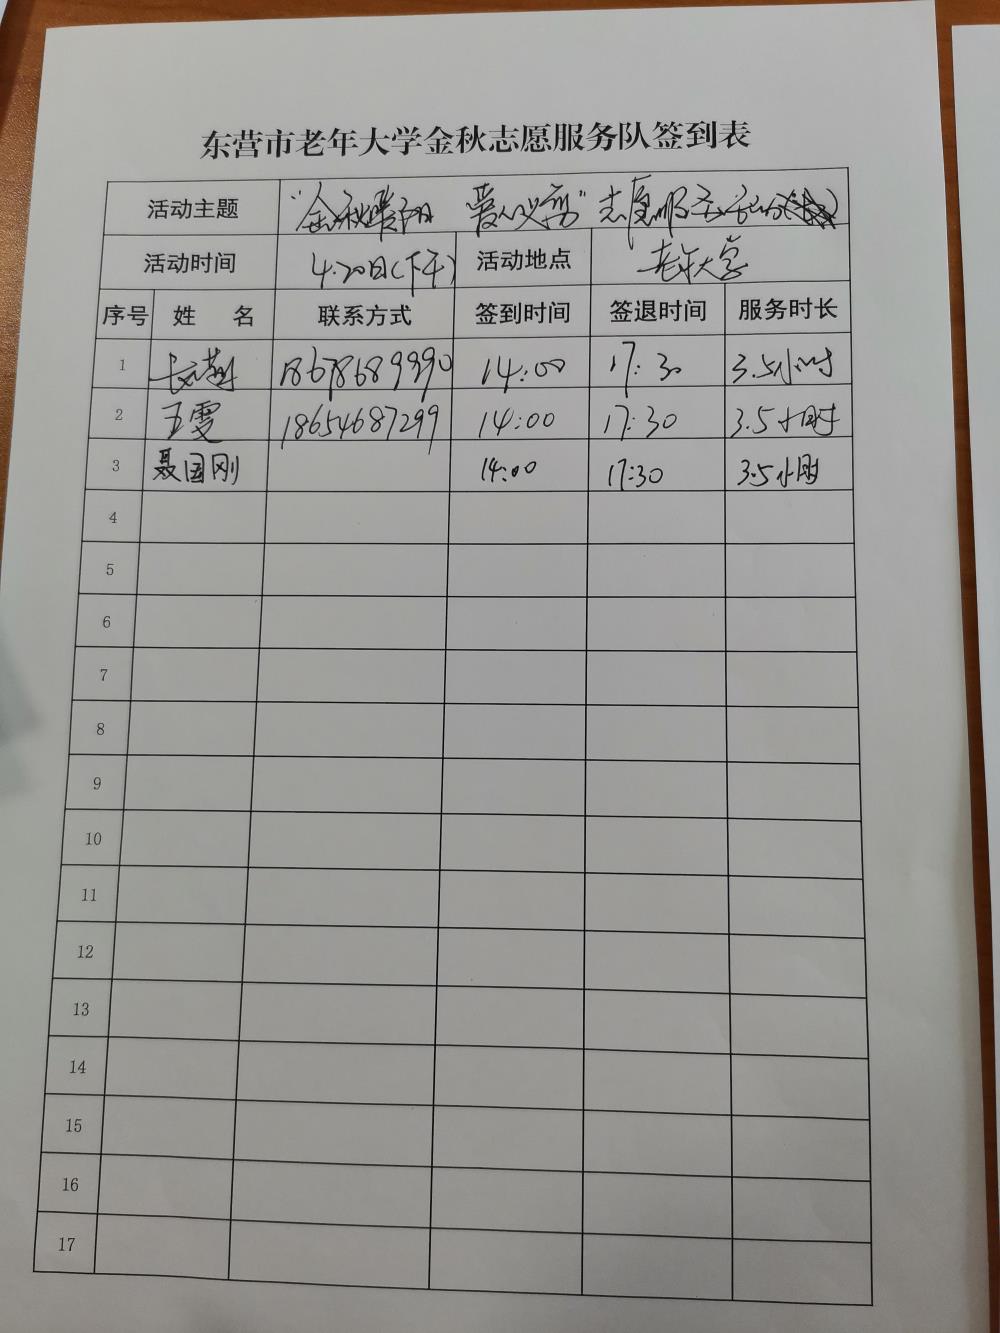 东营市老年大学金秋志愿服务队签到表
活动主题 "金秋 爱心义剪"志愿服务活动
活动时间 4.20日(下午) 活动地点 老年大学
序号 姓 名 联系方式 签到时间 签退时间 服务时长
1 18678689990 14:00 17:30 3.5小时
2 王雯 18654687299 14:00 17:30 3.5小时
3 聂国刚 14:00 17:30 3.5小时
4
5
6
7
8
9
10
11
12
13
14
15
16
17